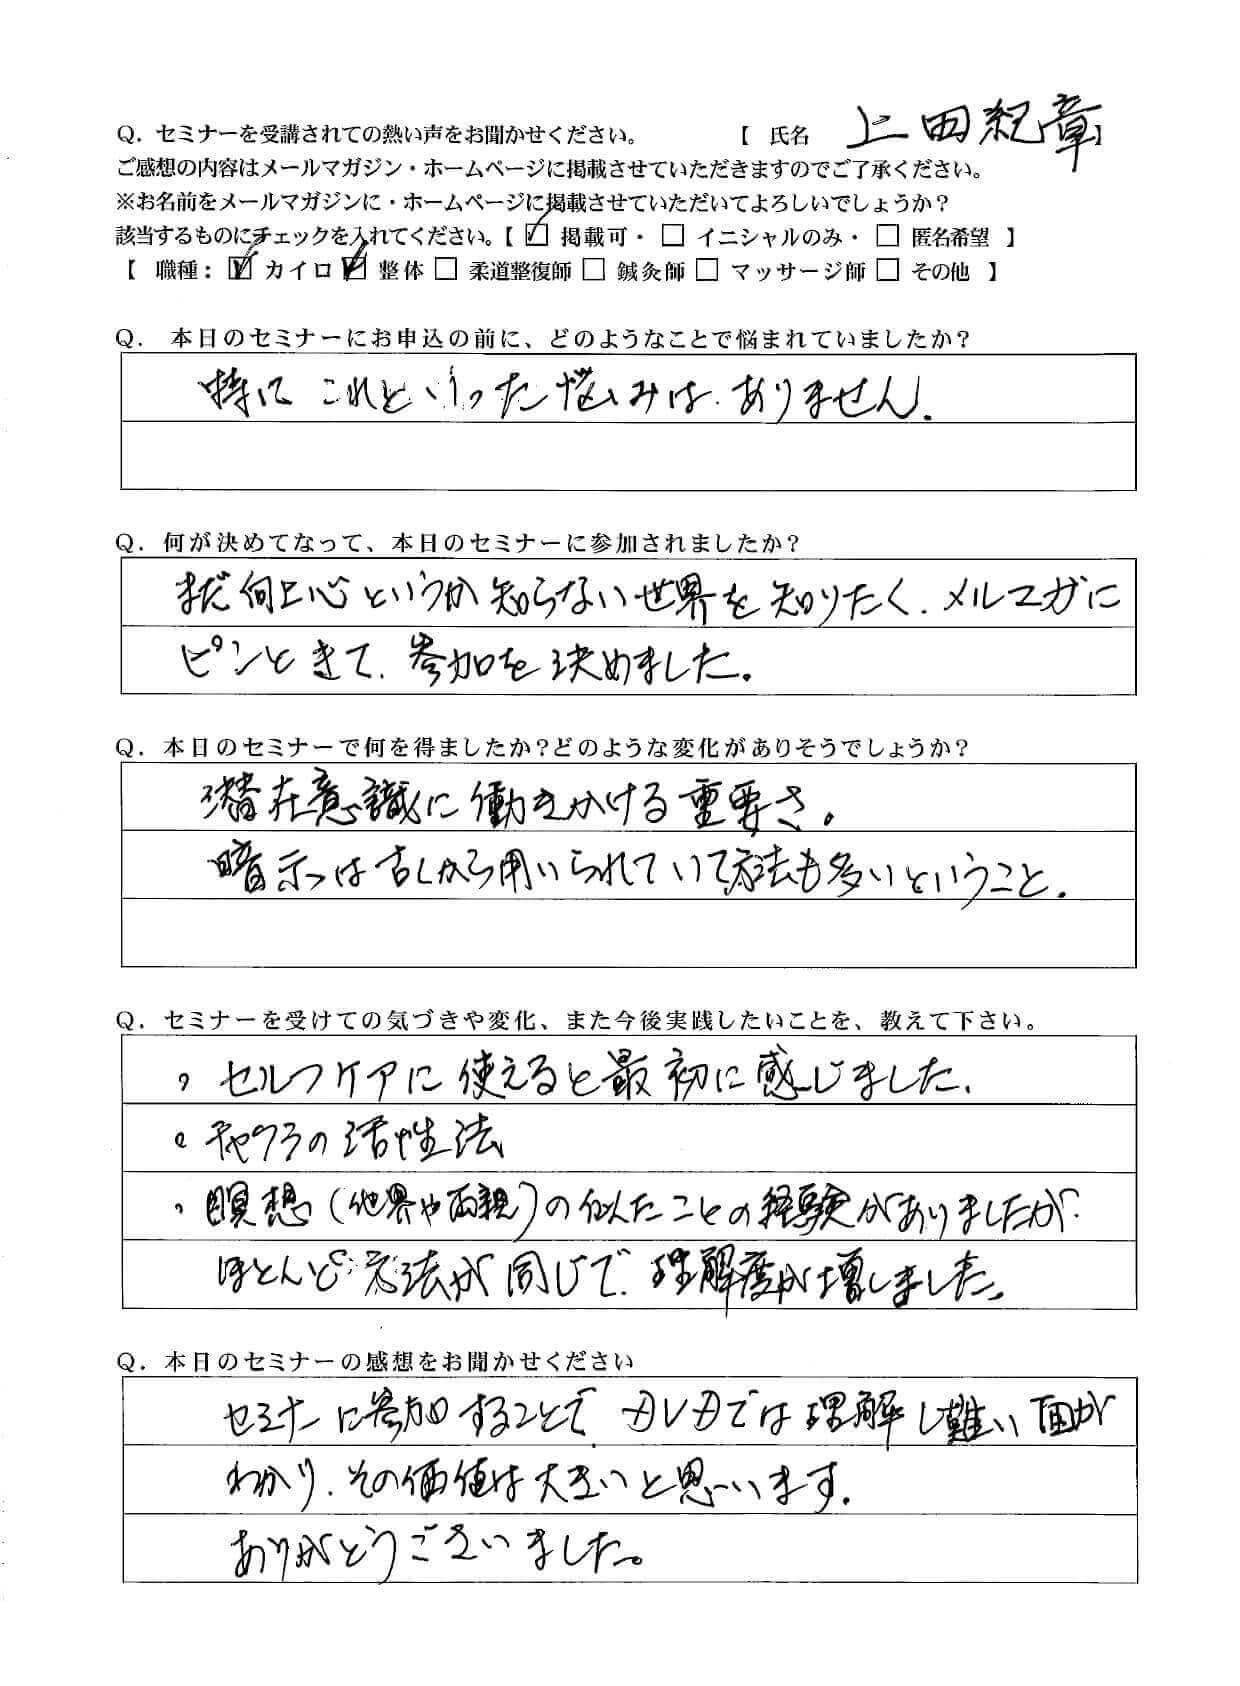 Q. セミナーを受講されての熱い声をお聞かせください。 【 氏名 上田紀章 】
ご感想の内容はメールマガジン・ホームページに掲載させていただきますのでご了承ください。
※お名前をメールマガジンに・ホームページに掲載させていただいてよろしいでしょうか？
該当するものにチェックを入れてください。【 ☑ 掲載可・ □ イニシャルのみ・ □ 匿名希望 】
【 職種： ☑ カイロ ☑ 整体 □ 柔道整復師 □ 鍼灸師 □ マッサージ師 □ その他 】
Q. 本日のセミナーにお申込の前に、どのようなことで悩まれていましたか？
特に これといった悩みは、ありません。
Q. 何が決めてなって、本日のセミナーに参加されましたか？
まだ向上心というか知らない世界を知りたく、メルマガに
ピンときて、参加を決めました。
Q. 本日のセミナーで何を得ましたか？どのような変化がありそうでしょうか？
潜在意識に働きかける重要さ。
暗示は古しから用いられていて方法も多いということ。
Q. セミナーを受けての気づきや変化、また今後実践したいことを、教えて下さい。
・セルフケアに使えると最初に感じました。
・チャクラの活性法
・瞑想（他界や両親）の似たことの経験がありましたが、
ほとんど方法が同じで、理解度が増しました。
Q. 本日のセミナーの感想をお聞かせください
セミナーに参加することで、DVDでは理解し難い面が
わかり、その価値は大きいと思います。
ありがとうございました。